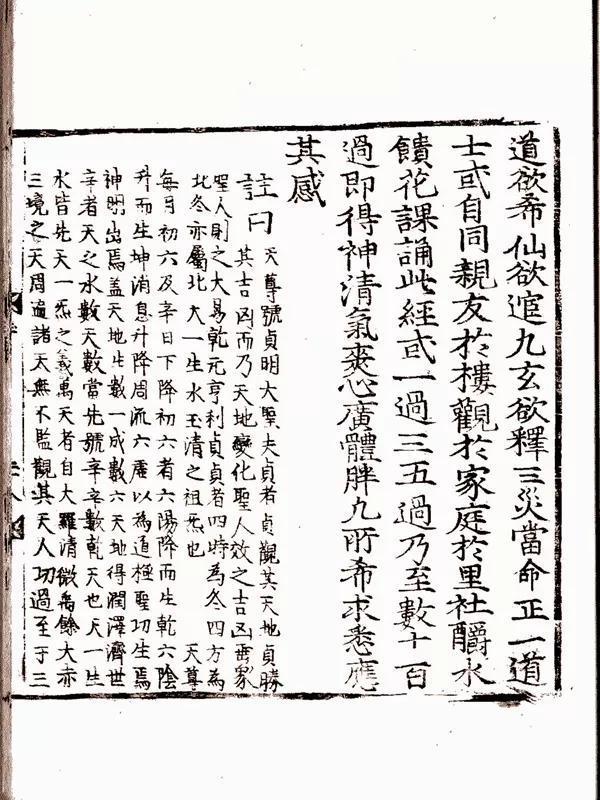 道欲希仙欲逭九玄欲釋三災當命正一道
士或自同親友於樓觀於家庭於里社酹水
饋花課誦此經或一過三五過乃至數十百
過即得神清氣爽心廣體胖凡所希求悉應
其感
註曰天尊號貞明大聖夫貞者貞觀其天地貞勝
其吉凶而乃天地變化聖人效之吉凶垂象
聖人則之大易乾元亨利貞貞者四時為冬四方為
北冬亦屬北天一生水玉清之祖炁也 天尊
每月初六及辛日下降初六者六陽降而生乾六陰
升而生坤消息升降周流六虛以為道極聖功生焉
神明出焉蓋天地生數一成數六天地得潤澤濟世
辛者天之水數天數當先號辛辛數乾天也天一生
水皆先天一炁之義萬天者自大羅清微禹餘大赤
三境之天周遍諸天無不監觀其天人功過至于三